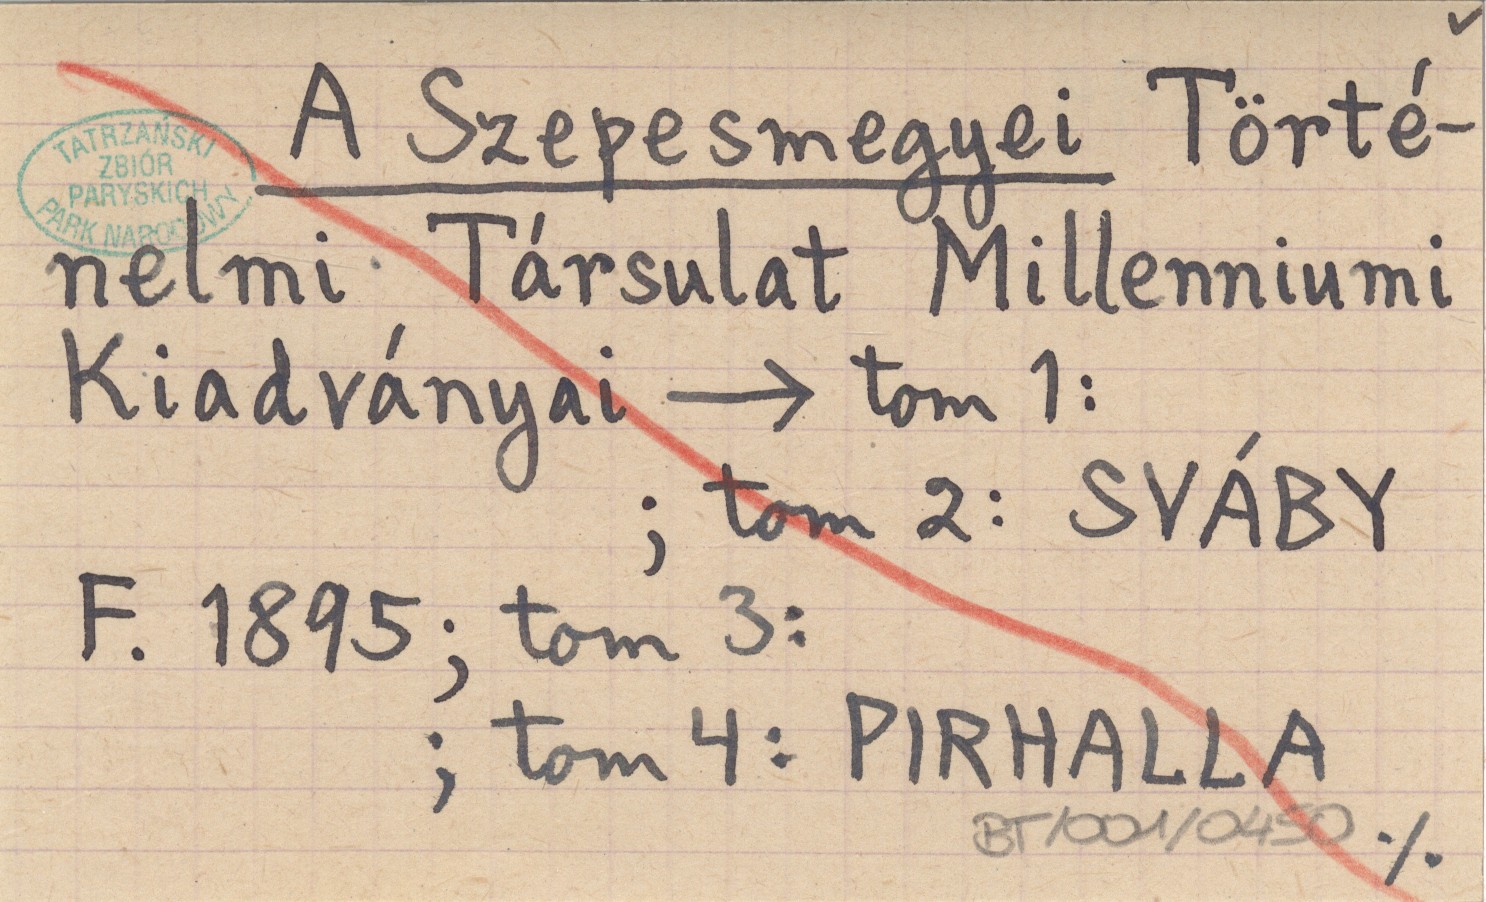 ✓
A Szepesmegyei Törté-
TATRZAŃSKI
ZBIÓR
PARYSKICH
PARK NARODOWY
nelmi Társulat Millenniumi
Kiadványai → tom 1:
; tom 2: SVÁBY
F. 1895; tom 3:
; tom 4: PIRHALLA
BT/001/0450
·/.